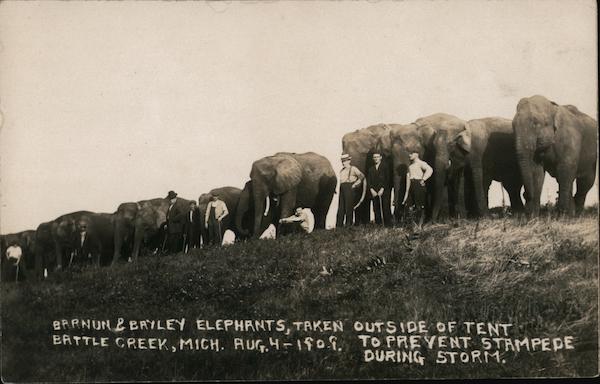 BARNUN & BAYLEY ELEPHANTS, TAKEN OUTSIDE OF TENT
BATTLE CREEK, MICH. AUG. 4-1909. TO PREVENT STAMPEDE
DURING STORM.